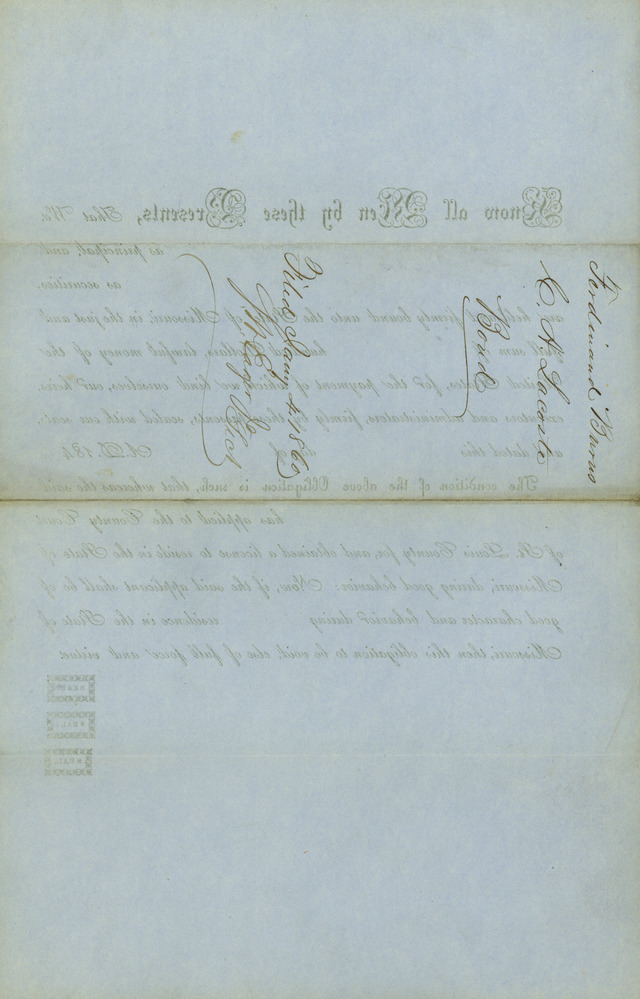 Ferdinand Burns
C. A. Laconte
Bond
Filed Jany 4. 1860
Know all Men by these Presents, That We
as principal, and
as securities,
are held and firmly bound unto the State of Missouri, in the just and
full sum of hundred dollars, lawful money of the
United States, for the payment of which we bind ourselves, our heirs,
executors and administrators, firmly by these presents, sealed with our seals,
and dated this day of A.D. 184
The condition of the above Obligation is such, that whereas the said
has applied to the County Court
of St. Louis County for, and obtained a license to reside in the State of
Missouri, during good behavior: Now, if the said applicant shall be of
good character and behavior during residence in the State of
Missouri, then this obligation to be void, else of full force and virtue.
SEAL
SEAL
SEAL